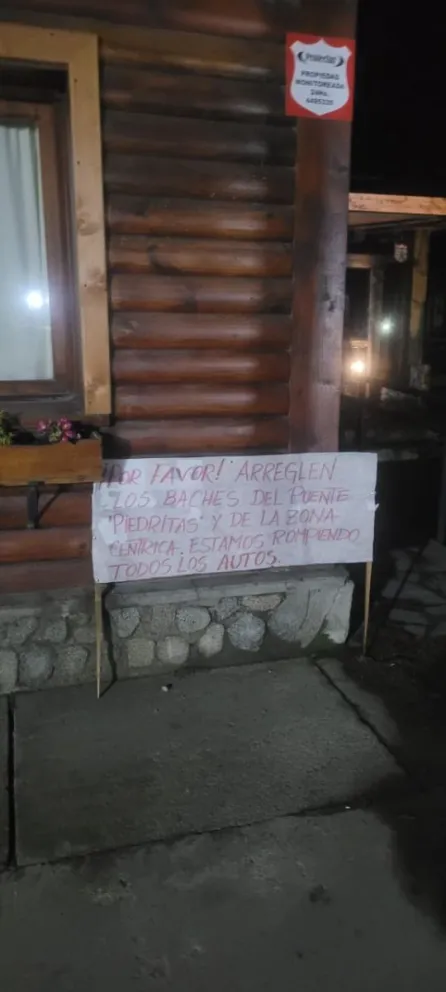 Prosectur
PROPIEDAD
MONITOREADA
¡POR FAVOR! ARREGLEN
LOS BACHES DEL PUENTE
"PIEDRITAS" Y DE LA ZONA
CENTRICA. ESTAMOS ROMPIENDO
TODOS LOS AUTOS.